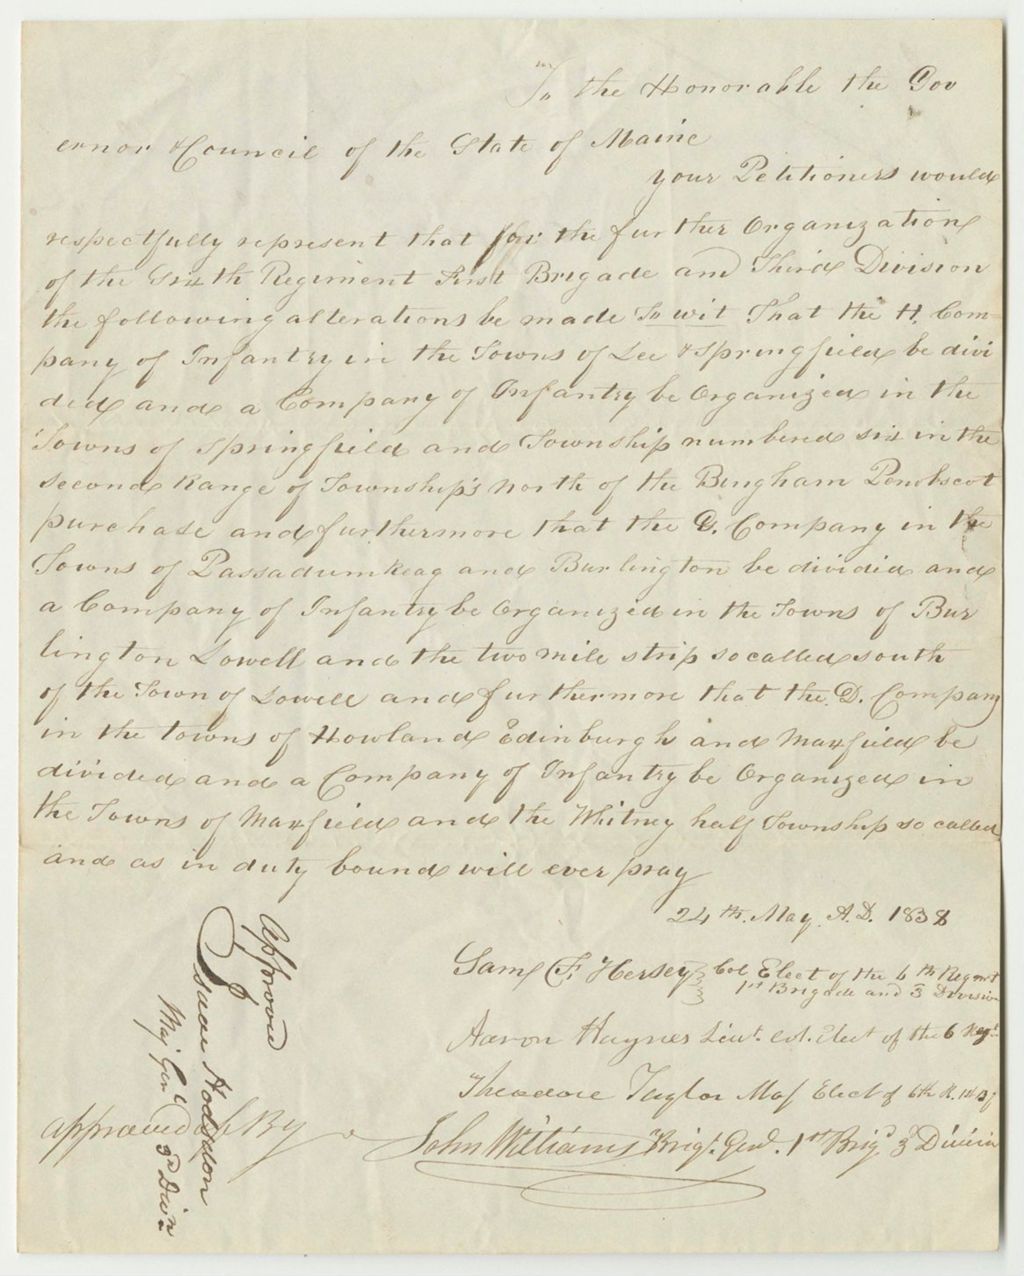 To the Honorable the Gov
ernor & Council of the State of Maine
your Petitioners would
respectfully represent that for the further Organization
of the Sixth Regiment First Brigade and Third Division
the following alterations be made To wit That the H. Com-
pany of Infantry in the Towns of Lee & Springfield be divi
ded and a Company of Infantry be Organized in the
Towns of Springfield and Township numbered six in the
second Range of Township's North of the Bingham Penobscot
purchase and furthermore that the G. Company in the
Towns of Passadumkeag and Burlington be divided and
a Company of Infantry be Organized in the Towns of Bur
lington Lowell and the two mile strip so called south
of the Town of Lowell and furthermore that the D. Company
in the towns of Howland Edinburgh and Maxfield be
divided and a Company of Infantry be Organized in
the Towns of Maxfield and the Whitney half Township so called
and as in duty bound will ever pray
24th. May. A.D. 1838
Saml F. Hersey Col Elect of the 6th Regmt
1st Brigade and 3 Division
Aaron Haynes Lieut. Col. Elect of the 6 Regt
Theodore Taylor Maj Elect of 6th R.
approved of By John Williams Brigr. Genl. 1st Brigd 3d Division
Approved
Isaac Hodsdon
Maj Genl
3d Divn